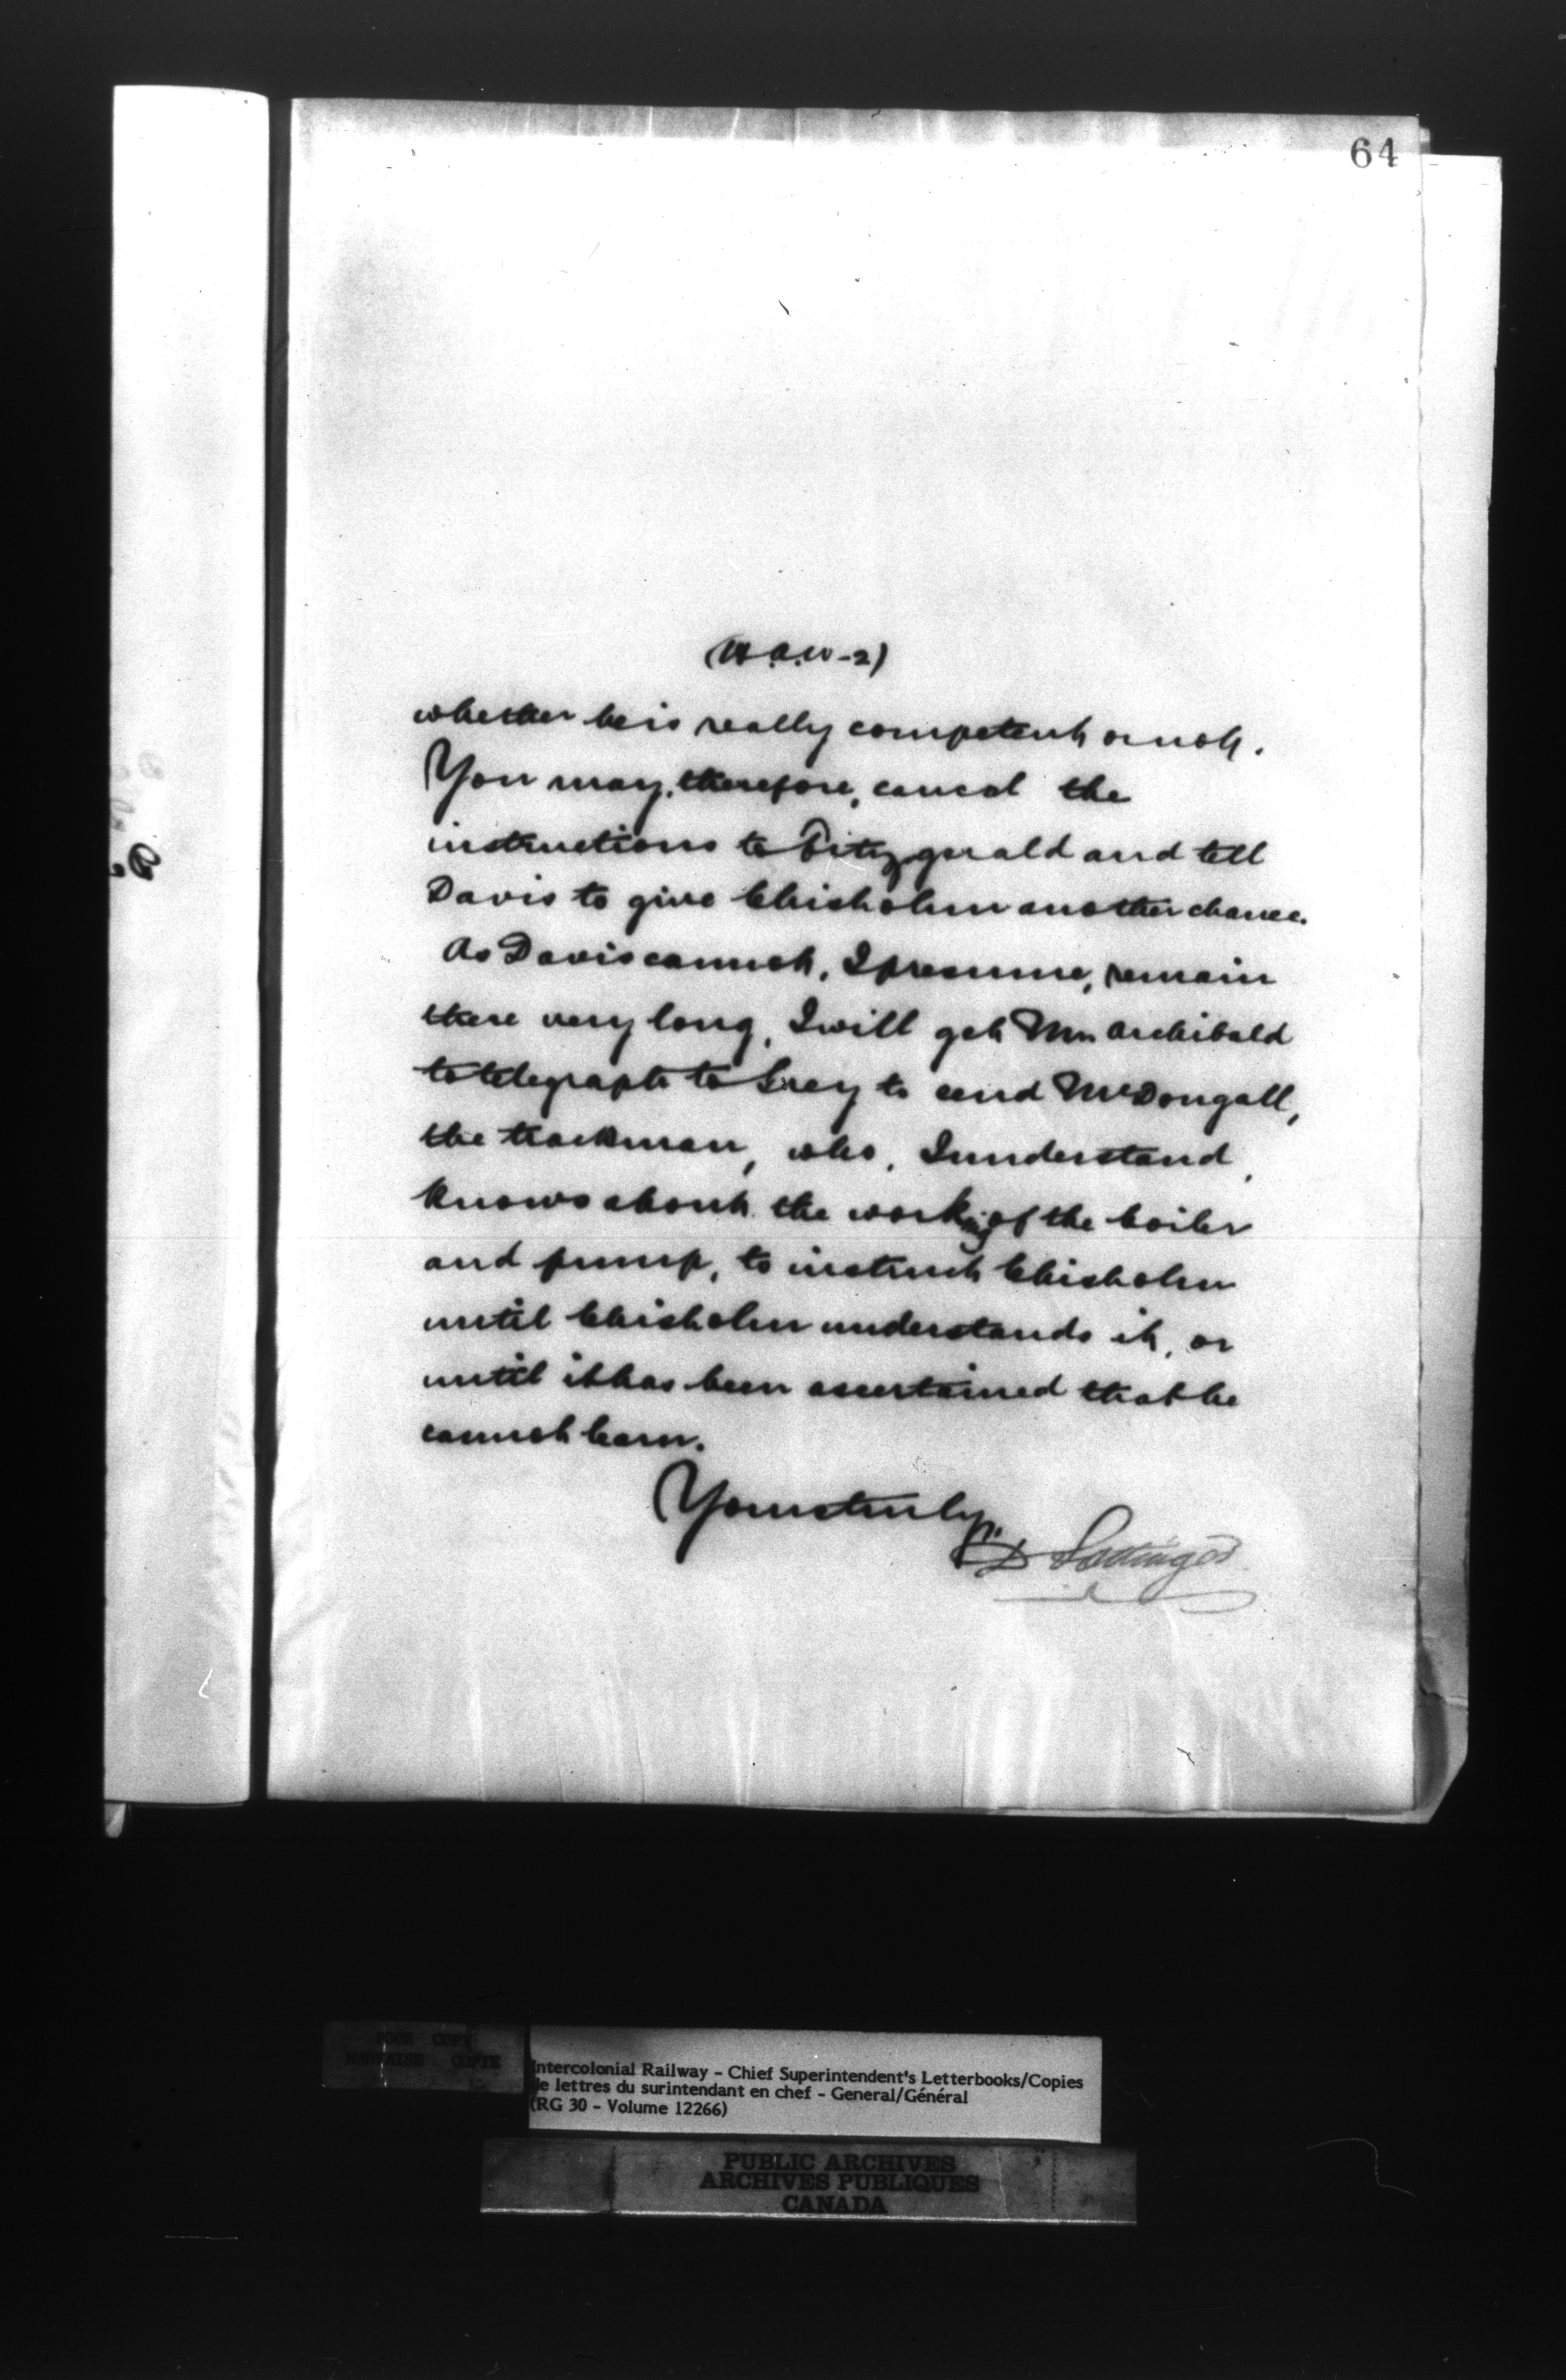 64
(H.A.W-2)
whether he is really competent or not.
You may, therefore, cancel the
instructions to Fitzgerald and tell
Davis to give Chisholm another chance.
As Davis cannot, I presume, remain
there very long, I will get Mr. Archibald
to telegraph to Grey to send McDougall,
the trackman, who, I understand,
knows about the working of the boiler
and pump, to instruct Chisholm
until Chisholm understands it, or
until it has been ascertained that he
cannot learn.
Yours truly,
D Pottinger
POOR COPY
MAUVAISE COPIE
Intercolonial Railway - Chief Superintendent's Letterbooks/Copies
de lettres du surintendant en chef - General/Général
(RG 30 - Volume 12266)
PUBLIC ARCHIVES
ARCHIVES PUBLIQUES
CANADA